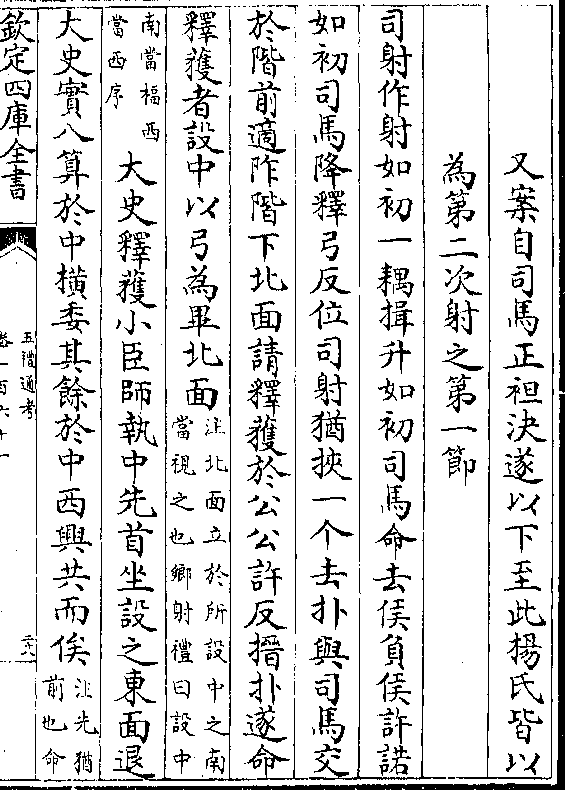 又案自司馬正袒決遂以下至此楊氏皆以
為第二次射之第一節
司射作射如初一耦揖升如初司馬命去侯負侯許諾
如初司馬降釋弓反位司射猶挾一个去扑與司馬交
於階前適阼階下北面請釋獲於公公許反搢扑遂命
釋獲者設中以弓為畢北面注北面立於所設中之南
當視之也鄉射禮曰設中
南當楅西
當西序
大史釋獲小臣師執中先首坐設之東面退
大史實八算於中橫委其餘於中西興共而俟注先猶
前也命
欽定四庫全書
五禮通考
卷一百六十一